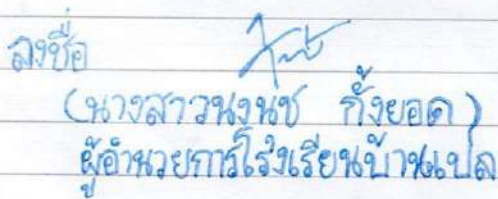 ลงชื่อ
(นางสาวนงนุช กั้งยอด)
ผู้อำนวยการโรงเรียนบ้านเปล